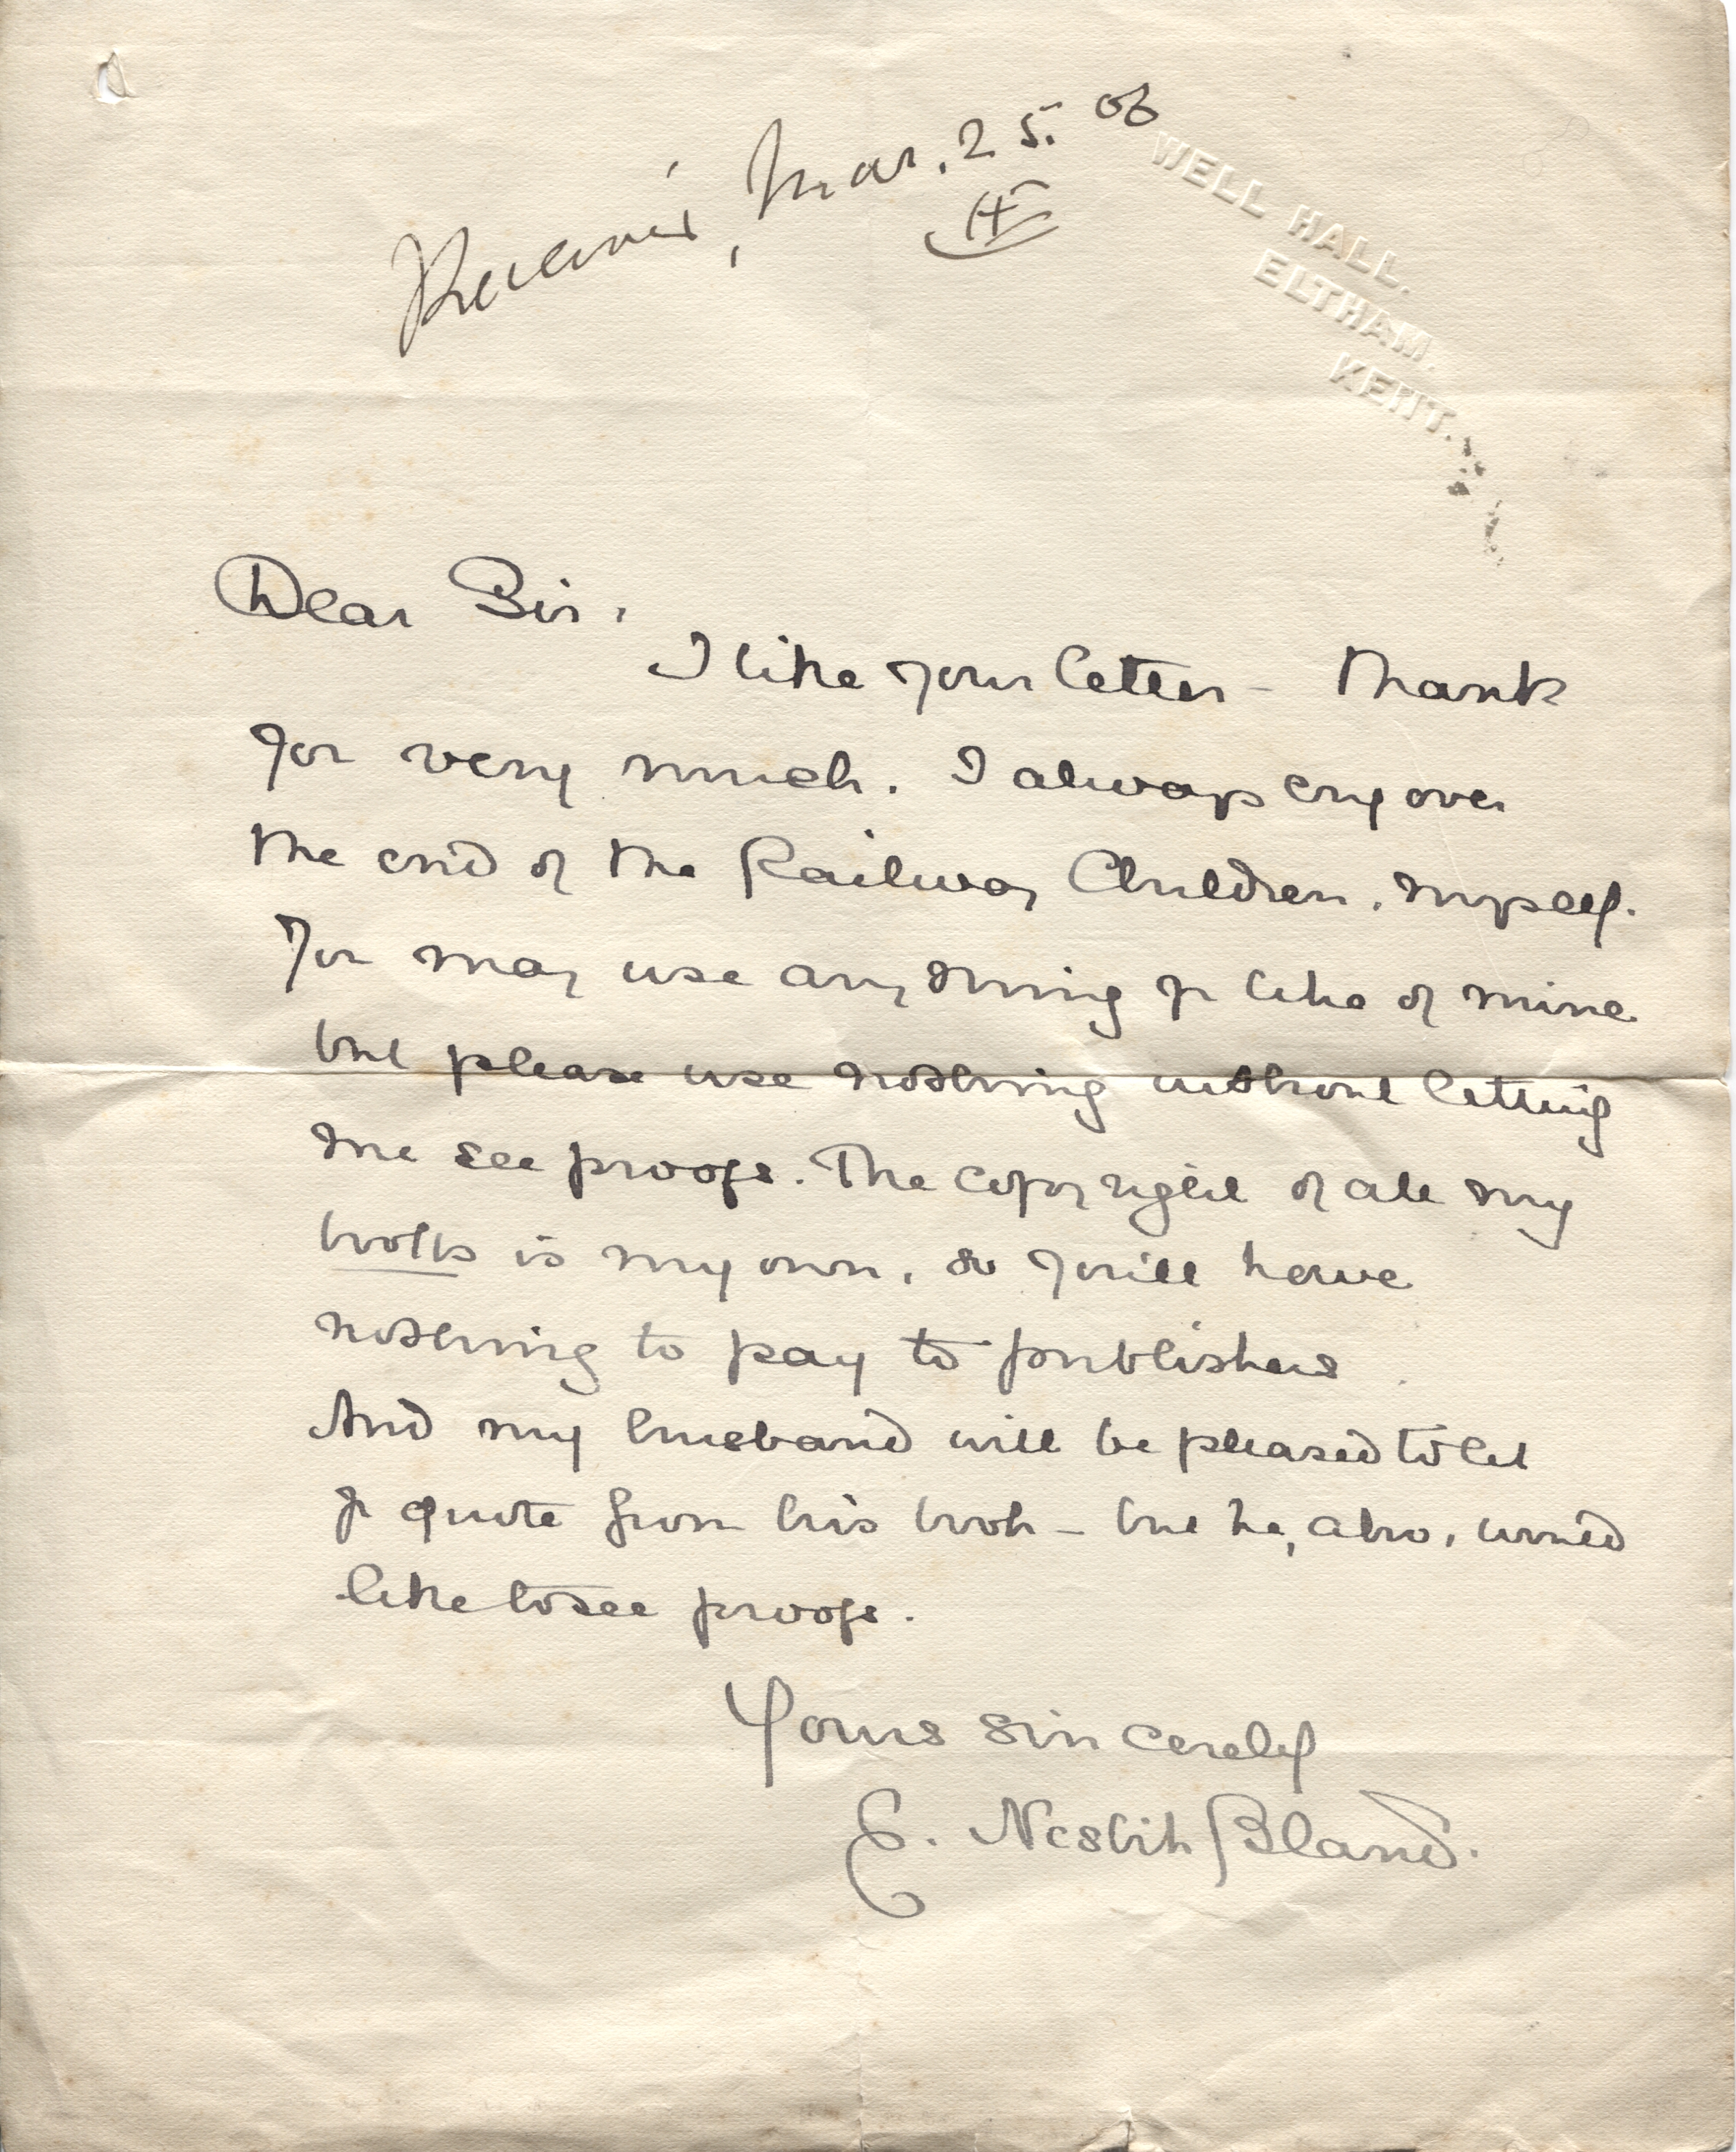 Received, Mar. 25.
WELL HALL.
ELTHAM.
KENT.
Dear Sir,
I like your letter - Thank
you very much. I always cry over
the end of the Railway Children, myself.
You may use anything you like of mine
but please use nothing without letting
me see proofs. The copyright of all my
books is my own, so you'll have
nothing to pay to publishers
And my husband will be pleased to let
you quote from his book - but he, also, would
like to see proofs.
Yours sincerely
E. Nesbit Bland.